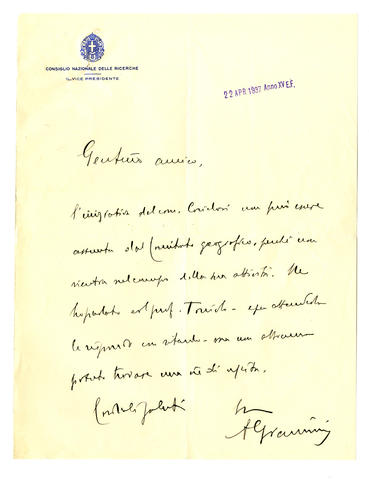 CONSIGLIO NAZIONALE DELLE RICERCHE
IL VICE PRESIDENTE
22 APR. 1937 Anno XV E.F.
Gentil.mo amico,
l'iniziativa del com. non può essere
assunta dal Comitato geografico, perché non
rientra nel campo della sua attività. Ne
ho parlato col prof. Toniolo
la risposta ma non abbiamo
potuto trovare una via di uscita.
Cordiali saluti
AGiannini